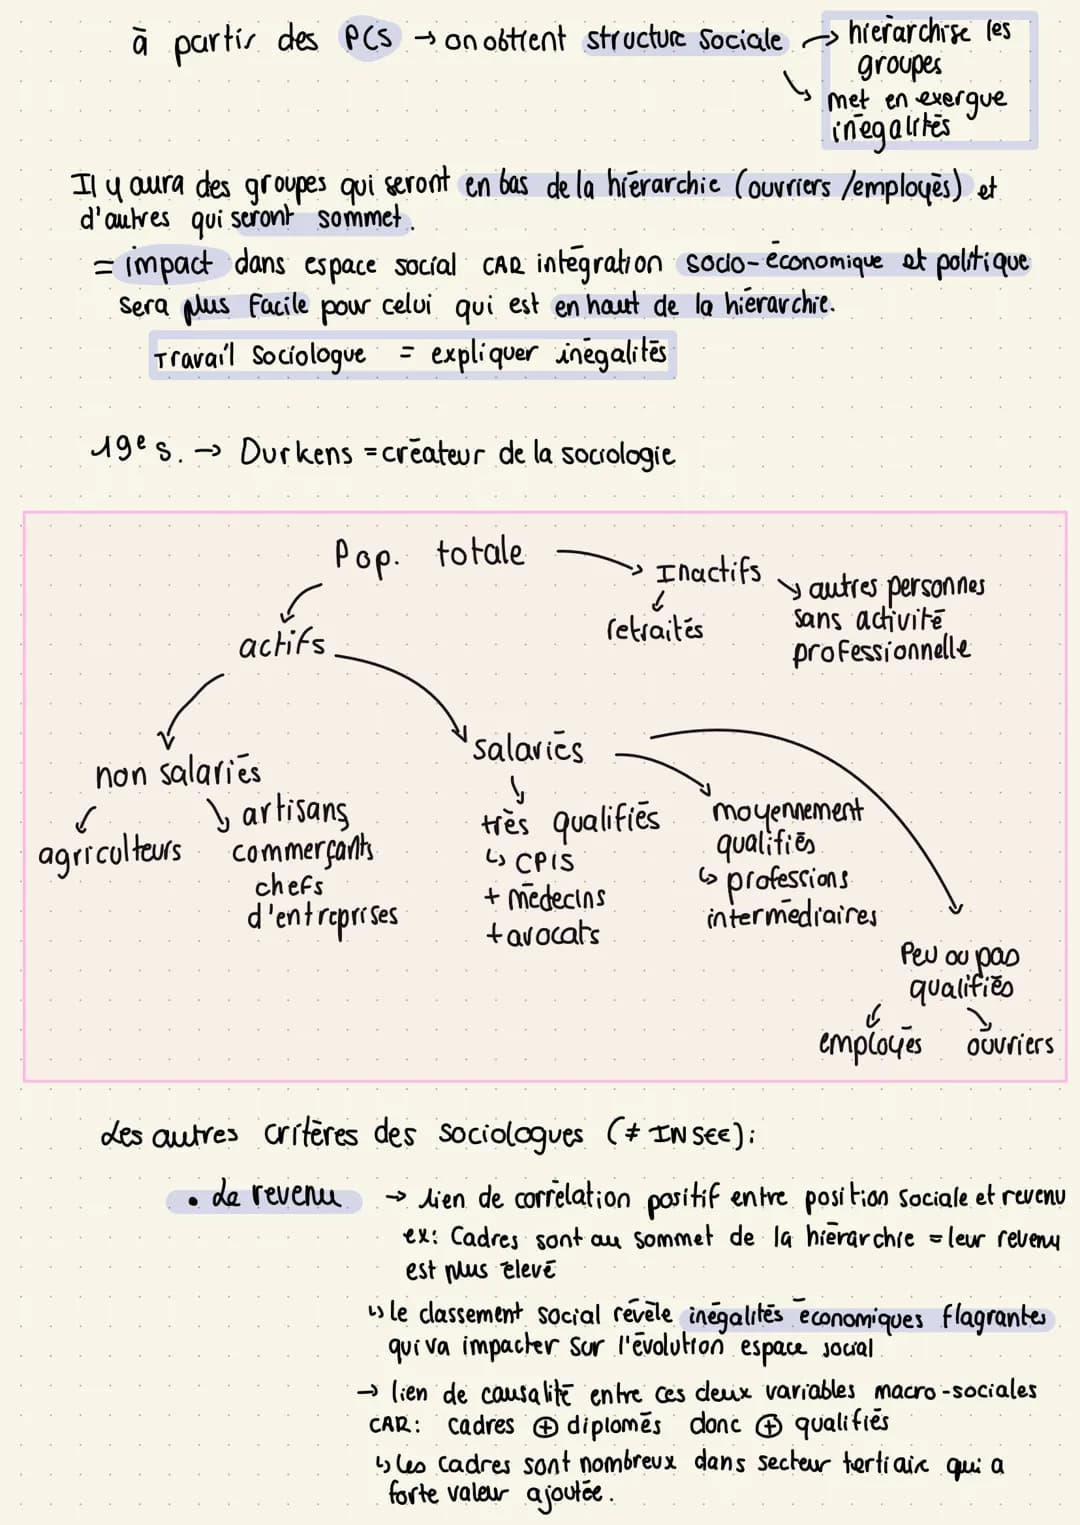 à partir des PCS → on obtient structure sociale → hiérarchise les groupes
↘ met en exergue inégalités
Il y aura des groupes qui seront en bas de la hiérarchie (ouvriers/employés) et
d'autres qui seront sommet.
= impact dans espace social CAR intégration socio-économique et politique
sera plus facile pour celui qui est en haut de la hiérarchie.
Travail Sociologue = expliquer inégalités
19e s. → Durkens = créateur de la sociologie
Pop. totale
Inactifs
autres personnes
sans activité
professionnelle
retraités
actifs
salariés
non salariés
agriculteurs
artisans
commerçants
chefs
d'entreprises
très qualifiés
↳ CPIS
+ médecins
+ avocats
moyennement
qualifiés
↳ professions
intermédiaires
Peu ou pas
qualifiés
employés
ouvriers
Les autres critères des sociologues (≠ INSEE):
• Le revenu → lien de corrélation positif entre position sociale et revenu
ex: Cadres sont au sommet de la hiérarchie = leur revenu
est plus élevé
↳ le classement social révèle inégalités économiques flagrantes
qui va impacter sur l'évolution espace social
→ lien de causalité entre ces deux variables macro-sociales
CAR: cadres ⊕ diplomés donc ⊕ qualifiés
↳ Les cadres sont nombreux dans secteur tertiaire qui a
forte valeur ajoutée.